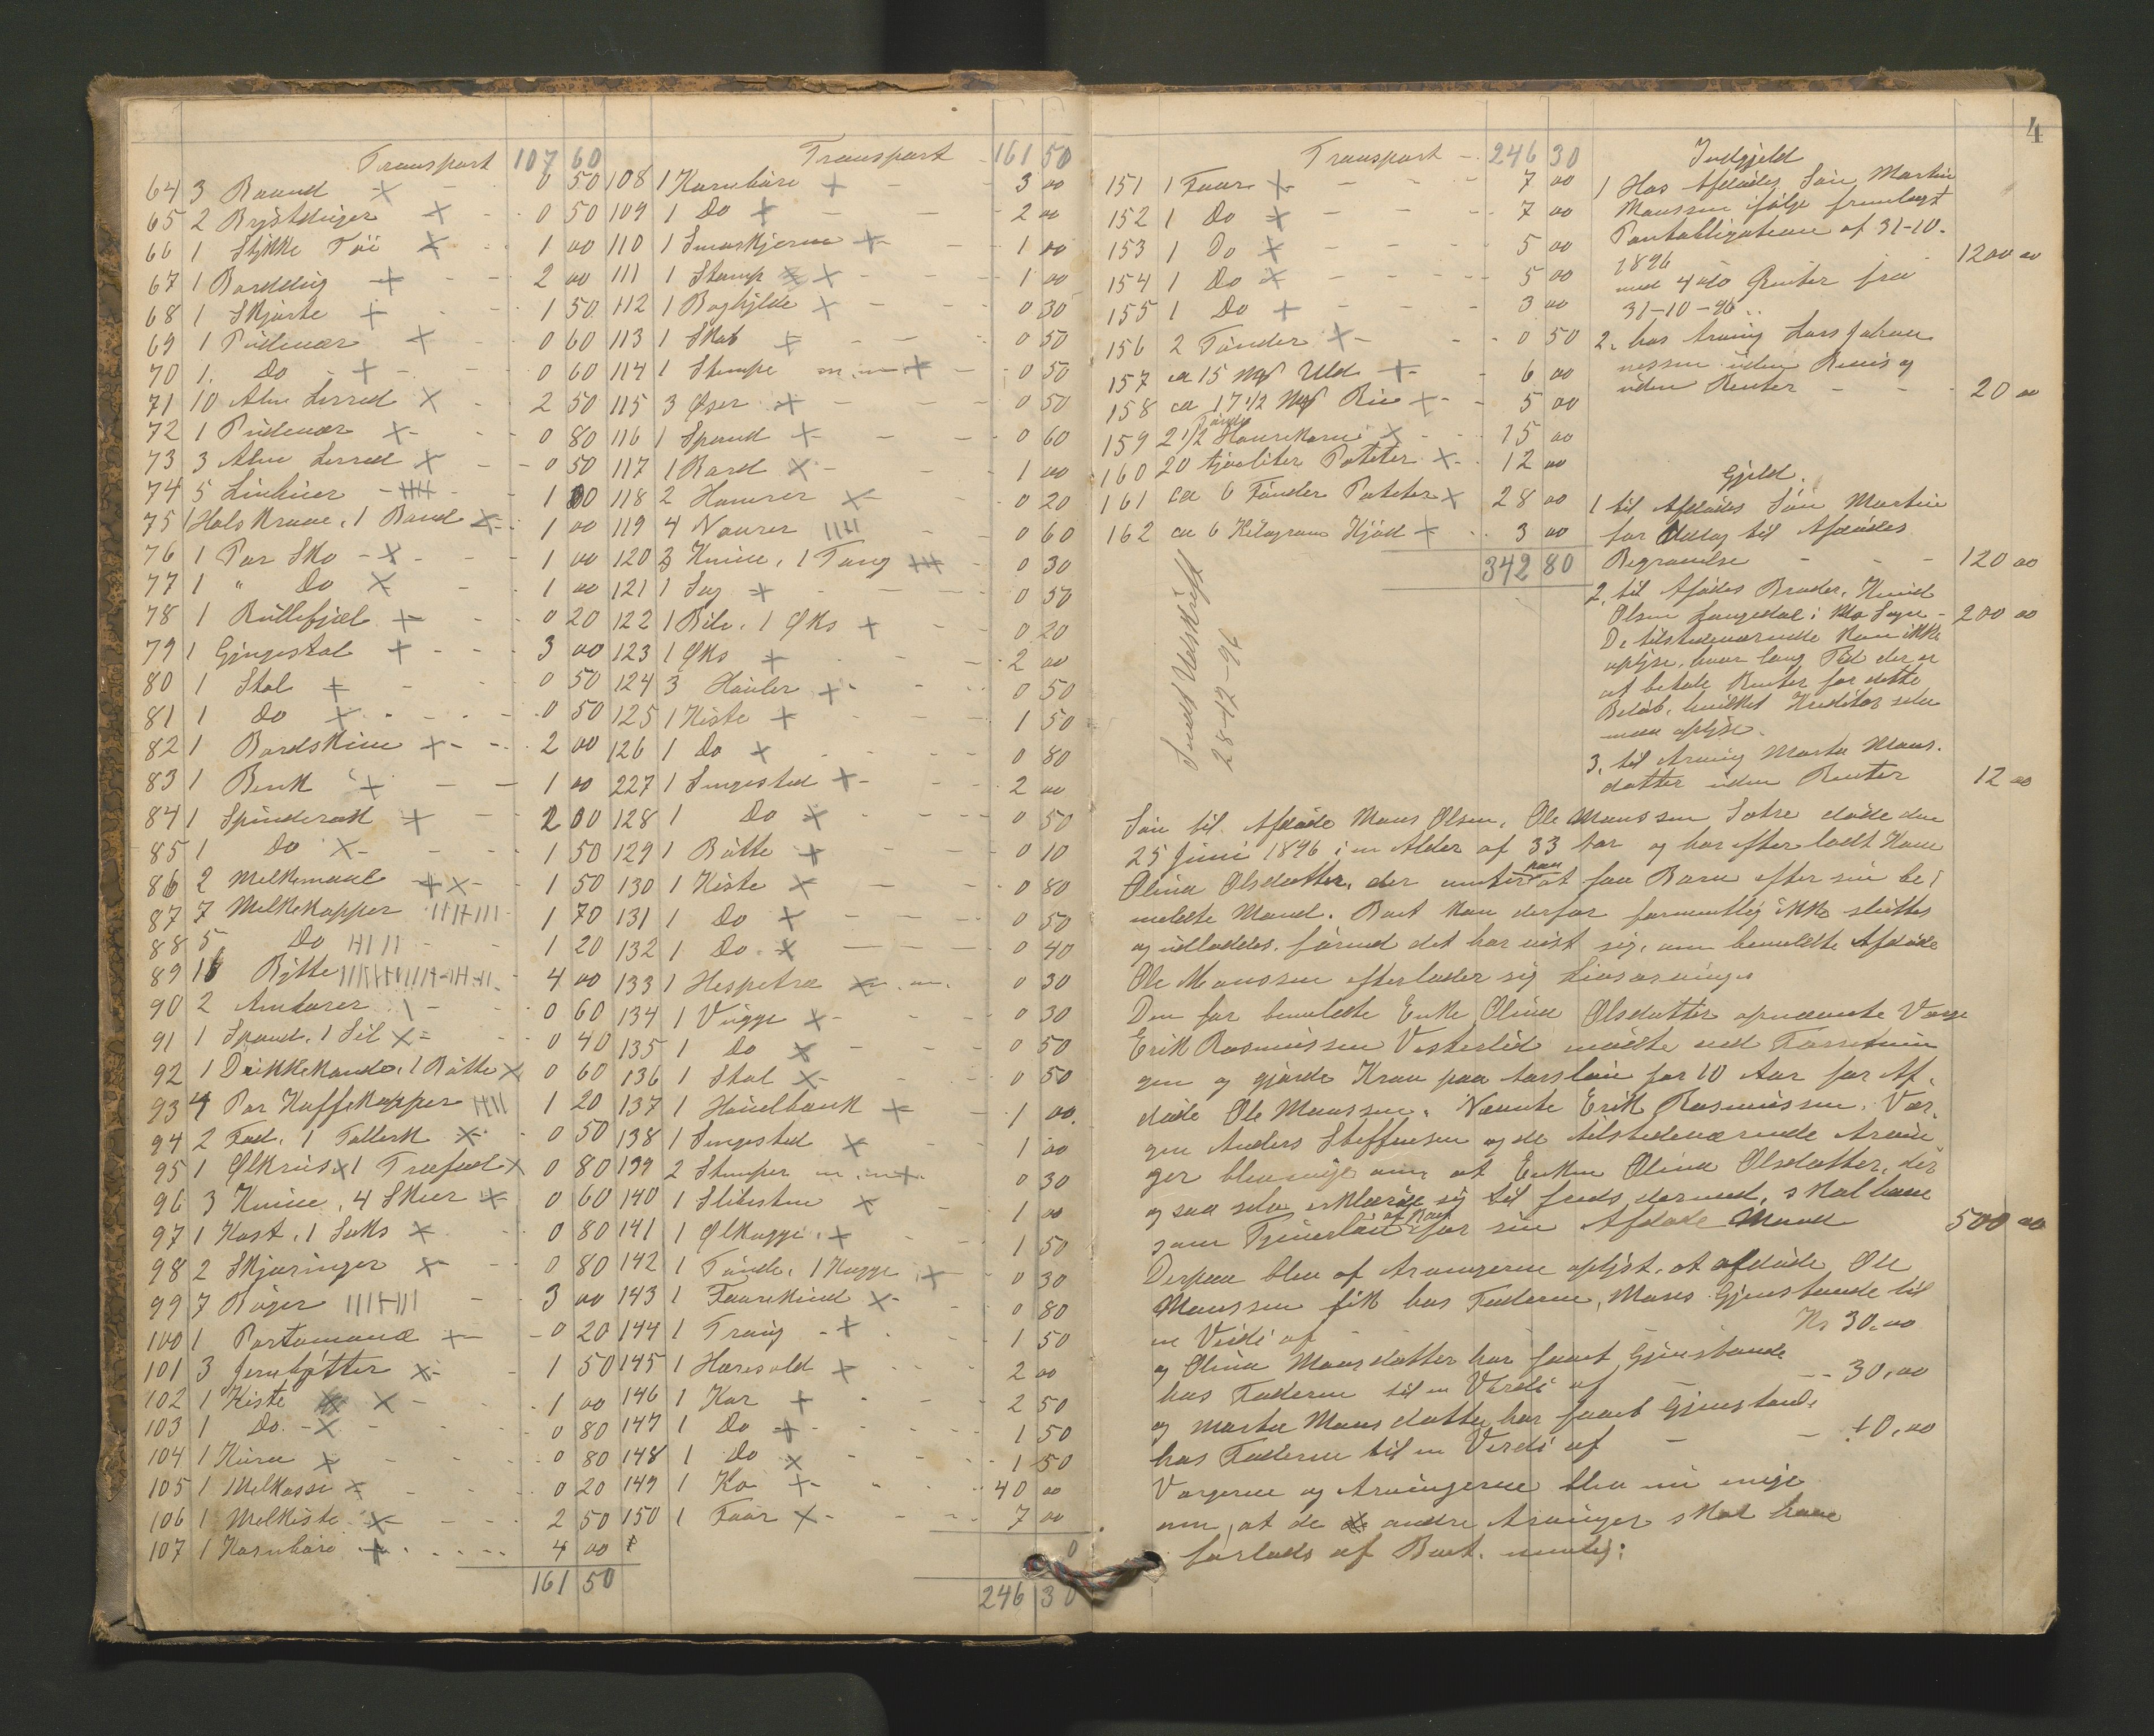 4
Transport 107 60
64 3 Baand 0 50
65 2 Brystduger 0 50
66 1 Stykke Töi 1 00
67 1 Borddug 2 00
68 1 Skjorte 1 50
69 1 Pudevar 0 60
70 1. Do 0 60
71 10 Alen Lerred 2 50
72 1 Pudevar 0 80
73 3 Alen Lerred 0 50
74 5 Linhuer 1 00
75 1 Halskrave, 1 Baand 1 00
76 1 Par Sko 1 00
77 1 " Do 1 00
78 1 Rullefjæl 0 20
79 1 Gyngestol 3 00
80 1 Stol 0 50
81 1 Do 0 50
82 1 Bordskive 2 00
83 1 Benk 1 00
84 1 Spinderok 2 00
85 1 Do 1 50
86 2 Melkemaal 1 50
87 7 Melkekopper 1 70
88 5 Do 1 20
89 16 Bytte 4 00
90 2 Amtarer 0 60
91 1 Spand, 1 Sil 0 40
92 1 Drikkekande, 1 Bötte 0 60
93 4 Par Kaffekopper 1 20
94 2 Fad, 1 Tallerk 0 50
95 1 Ølkrus, 1 Træfad 0 80
96 3 Knive, 4 Skeer 0 60
97 1 Kost, 1 Saks 0 80
98 2 Skjæringer 0 80
99 7 Böger 3 00
100 1 Portomonæ 0 20
101 3 Jerngrytter 1 50
102 1 Kiste 1 00
103 1 Do 0 80
104 1 Kurv 0 80
105 1 Melkasse 0 20
106 1 Melkiste 2 50
107 1 Kornböre 4 00
161 50
Transport 161 50
108 1 Kornböre 3 00
109 1 Do 2 00
110 1 Smørkjerne 1 00
111 1 Stamp 1 00
112 1 Boghylde 0 30
113 1 Skab 0 50
114 1 Stampe m.m. 0 50
115 3 Øser 0 50
116 1 Spand 0 60
117 1 Bord 1 00
118 2 Hamrer 0 20
119 4 Navrer 0 60
120 3 Knive, 1 Tang 0 30
121 1 Sag 0 50
122 1 Bile, 1 Øks 0 20
123 1 Øks 2 00
124 3 Hövler 0 50
125 1 Kiste 1 50
126 1 Do 0 80
227 1 Sengested 2 00
128 1 Do 0 50
129 1 Bötte 0 10
130 1 Kiste 0 80
131 1 Do 0 50
132 1 Do 0 40
133 1 Hespetræ m.m. 0 30
134 1 Vugge 0 30
135 1 Do 0 50
136 1 Stol 0 50
137 1 Hövelbænk 1 00
138 1 Sengested 1 00
139 2 Stamper m.m. 0 30
140 1 Slibesten 1 00
141 1 Ølkagge 1 50
142 1 Tönde, 1 Kagge 0 30
143 1 Faareskind 0 80
144 1 Traug 1 50
145 1 Hæresold 2 00
146 1 Kar 2 50
147 1 Do 1 50
148 1 Do 1 50
149 1 Ko 40 00
150 1 Faar 7 00
246 30
Transport 246 30
151 1 Faar 7 00
152 1 Do 7 00
153 1 Do 5 00
154 1 Do 5 00
155 1 Do 3 00
156 2 Tönder 0 50
157 ca 15 Uld 6 00
158 ca 17 1/2 5 00
159 2 1/2 Tönde Havrekorn 15 00
160 20 tyveliter Poteter 12 00
161 ca 6 Tönder Poteter 28 00
162 ca 6 Kilogram Kjöd 3 00
342 80
Sendt Udskrift
28-12-96
Indgjeld
1 Hos Afdödes Sön Martin
Monssen ifölge fremlagt
Pantobligation af 31-10-
1896 1200 00
med 4 o/o Renter fra
31-10-96
2. hos Arving Lars Johan
nessen uden Bevis og
uden Renter 20 00
Gjeld.
1 til Afdödes Sön Martin
for Udlæg til Afdödes
Begravelse 120 00
2. til Afdödes Broder, Knud
Olsen Langedal i Mo Sogn 200 00
De tilstedeværende kan ikke
oplyse, hvor lang Tid der er
at betale Renter for dette
Belöb, hvilket Kreditor selv
maa oplyse.
3. til Arving Marta Mons-
datter uden Renter 12 00
Sön til Afdöde Mons Olsen, Ole Monssen Sotre döde den
25 Juni 1896 i en Alder af 33 Aar og har efterladt Kone
Olina Olsdatter, der venter paa at faa Barn efter sin be-
meldte Mand. Boet kan derfor formentlig ikke sluttes
og udloddes, förend det har vist sig, om bemeldte Afdöde
Ole Monssen efterlader sig Livsarvinger
Den for bemeldte Enke Olina Olsdatter opnævnte Værge
Erik Rasmussen Vesterlid mödte ved Forretnin
gen og gjorde Krav paa Aarslön for 10 Aar for Af-
döde Ole Monssen. Nævnte Erik Rasmussen, Vær-
gen Anders Steffensen og de tilstedeværende Arvin
ger blev enige om, at Enken Olina Olsdatter, der
ogsaa selv erklærede sig tilfreds dermed, skal have
som Tjenerlön af Boet for sin Afdöde Mand 500 00
Derpaa blev af Arvingerne oplyst, at afdöde Ole
Monssen fik hos Faderen, Mons Gjenstande til
en Verdi af Kr 30,00
og Olina Monsdatter har faaet Gjenstande
hos Faderen til en Værdi af 30,00
og Marta Monsdatter har faaet Gjenstande
hos Faderen til en Verdi af 40,00
Værgerne og Arvingerne blev nu enige
om, at de andre Arvinger skal have
forlods af Boet, nemlig: